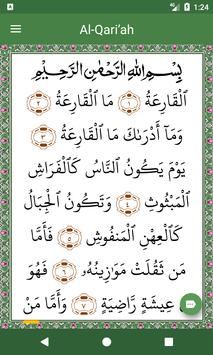 1:24
Al-Qari'ah
بِسْمِ ٱللَّهِ ٱلرَّحْمَٰنِ ٱلرَّحِيمِ
ٱلْقَارِعَةُ ١ مَا ٱلْقَارِعَةُ ٢
وَمَآ أَدْرَىٰكَ مَا ٱلْقَارِعَةُ ٣
يَوْمَ يَكُونُ ٱلنَّاسُ كَٱلْفَرَاشِ
ٱلْمَبْثُوثِ ٤ وَتَكُونُ ٱلْجِبَالُ
كَٱلْعِهْنِ ٱلْمَنفُوشِ ٥ فَأَمَّا
مَن ثَقُلَتْ مَوَٰزِينُهُۥ ٦ فَهُوَ
فِى عِيشَةٍ رَّاضِيَةٍ ٧ وَأَمَّا مَنْ